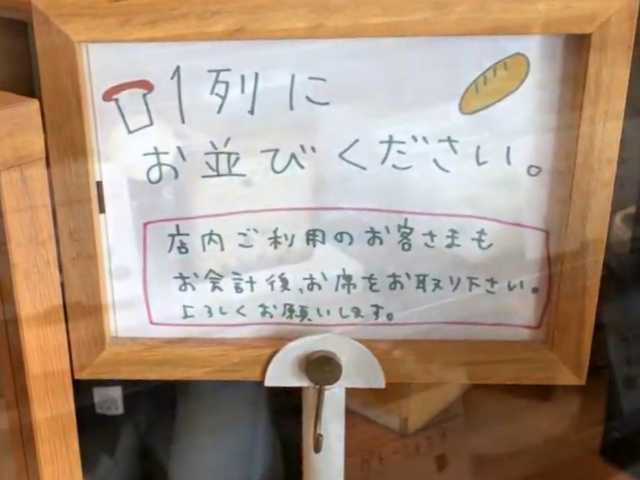 1列に
お並びください。
店内ご利用のお客さまも
お会計後、お席をお取り下さい。
よろしくお願いします。